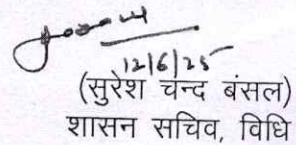 12/6/25
(सुरेश चन्द बंसल)
शासन सचिव, विधि